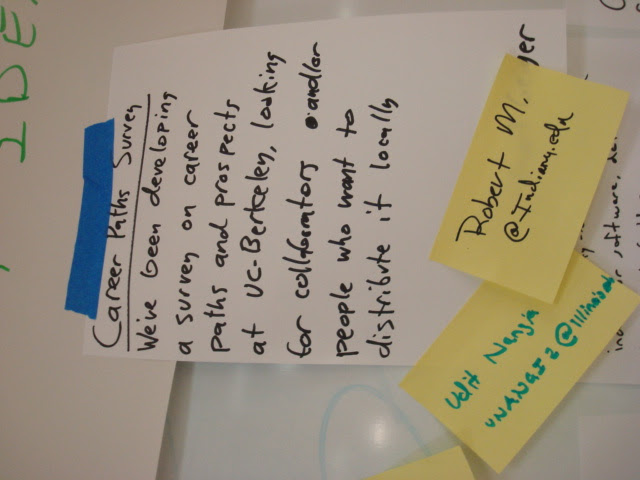 IDE
Career Paths Survey
We've been developing
a survey on career
paths and prospects
at UC-Berkeley, looking
for collaborators and/or
people who want to
distribute it locally
Udit Nangia
UNANGI2@Illinois.edu
Robert M.
@Indiana.edu
yer
software,